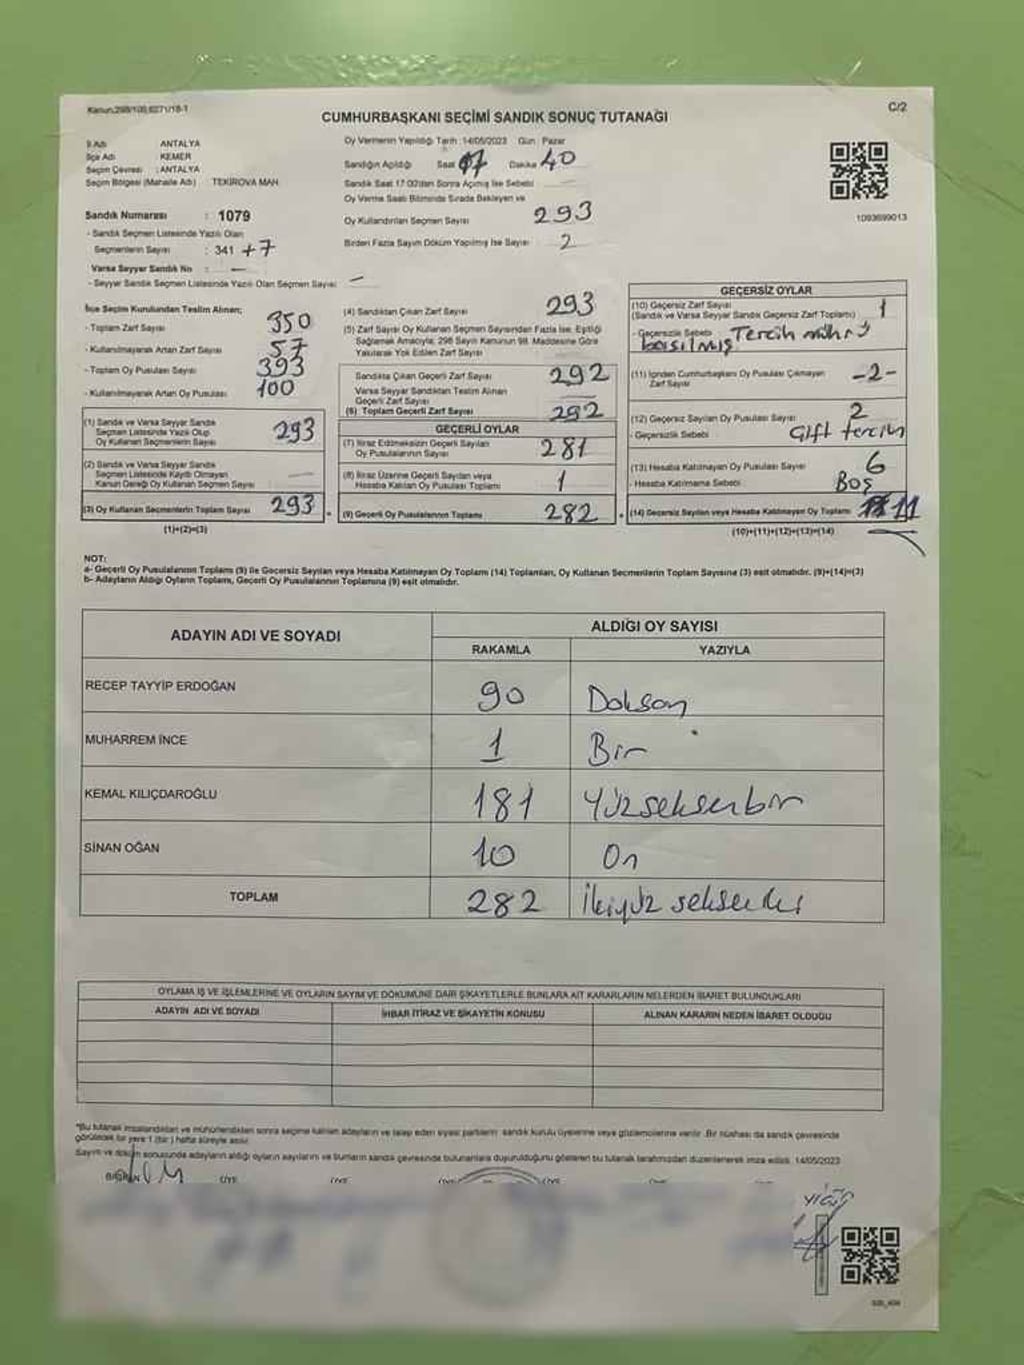 Kanun:298/105,6271/18-1
C/2
CUMHURBAŞKANI SEÇİMİ SANDIK SONUÇ TUTANAĞI
İl Adı : ANTALYA
İlçe Adı : KEMER
Seçim Çevresi : ANTALYA
Seçim Bölgesi (Mahalle Adı) TEKİROVA MAH.
Sandık Numarası : 1079
- Sandık Seçmen Listesinde Yazılı Olan
Seçmenlerin Sayısı : 341 +7
Varsa Seyyar Sandık No : —
- Seyyar Sandık Seçmen Listesinde Yazılı Olan Seçmen Sayısı —
Oy Vermenin Yapıldığı Tarih :14/05/2023 Gün : Pazar
Sandığın Açıldığı Saat 17 Dakika 40
Sandık Saat 17:00'dan Sonra Açılmış İse Sebebi
Oy Verme Saati Bitiminde Sırada Bekleyen ve
Oy Kullandırılan Seçmen Sayısı 293
Birden Fazla Sayım Döküm Yapılmış İse Sayısı 2
1093699013
İlçe Seçim Kurulundan Teslim Alınan;
- Toplam Zarf Sayısı 350
- Kullanılmayarak Artan Zarf Sayısı 57
- Toplam Oy Pusulası Sayısı 393
- Kullanılmayarak Artan Oy Pusulası 100
(1) Sandık ve Varsa Seyyar Sandık
Seçmen Listesinde Yazılı Olup
Oy Kullanan Seçmenlerin Sayısı 293
(2) Sandık ve Varsa Seyyar Sandık
Seçmen Listesinde Kayıtlı Olmayan
Kanun Gereği Oy Kullanan Seçmen Sayısı —
(3) Oy Kullanan Seçmenlerin Toplam Sayısı 293
(1)+(2)=(3)
(4) Sandıktan Çıkan Zarf Sayısı 293
(5) Zarf Sayısı Oy Kullanan Seçmen Sayısından Fazla İse, Eşitliği
Sağlamak Amacıyla, 298 Sayılı Kanunun 98. Maddesine Göre
Yakılarak Yok Edilen Zarf Sayısı
Sandıkta Çıkan Geçerli Zarf Sayısı 292
Varsa Seyyar Sandıktan Teslim Alınan
Geçerli Zarf Sayısı —
(6) Toplam Geçerli Zarf Sayısı 292
GEÇERLİ OYLAR
(7) İtiraz Edilmeksizin Geçerli Sayılan
Oy Pusulalarının Sayısı 281
(8) İtiraz Üzerine Geçerli Sayılan veya
Hesaba Katılan Oy Pusulası Toplamı 1
(9) Geçerli Oy Pusulalarının Toplamı 282
GEÇERSİZ OYLAR
(10) Geçersiz Zarf Sayısı 1
(Sandık ve Varsa Seyyar Sandık Geçersiz Zarf Toplamı)
- Geçersizlik Sebebi Tercih mührü
basılmış
(11) İçinden Cumhurbaşkanı Oy Pusulası Çıkmayan
Zarf Sayısı -2-
(12) Geçersiz Sayılan Oy Pusulası Sayısı 2
- Geçersizlik Sebebi Çift tercih
(13) Hesaba Katılmayan Oy Pusulası Sayısı 6
- Hesaba Katılmama Sebebi Boş
(14) Geçersiz Sayılan veya Hesaba Katılmayan Oy Toplamı 11
(10)+(11)+(12)+(13)=(14)
NOT:
a- Geçerli Oy Pusulalarının Toplamı (9) ile Geçersiz Sayılan veya Hesaba Katılmayan Oy Toplamı (14) Toplamları, Oy Kullanan Seçmenlerin Toplam Sayısına (3) eşit olmalıdır. (9)+(14)=(3)
b- Adayların Aldığı Oyların Toplamı, Geçerli Oy Pusulalarının Toplamına (9) eşit olmalıdır.
ADAYIN ADI VE SOYADI
ALDIĞI OY SAYISI
RAKAMLA YAZIYLA
RECEP TAYYİP ERDOĞAN 90 Doksan
MUHARREM İNCE 1 Bir
KEMAL KILIÇDAROĞLU 181 Yüzseksenbir
SİNAN OĞAN 10 On
TOPLAM 282 İkiyüz sekseniki
OYLAMA İŞ VE İŞLEMLERİNE VE OYLARIN SAYIM VE DÖKÜMÜNE DAİR ŞİKAYETLERLE BUNLARA AİT KARARLARIN NELERDEN İBARET BULUNDUKLARI
ADAYIN ADI VE SOYADI İHBAR İTİRAZ VE ŞİKAYETİN KONUSU ALINAN KARARIN NEDEN İBARET OLDUĞU
*Bu tutanak imzalandıktan ve mühürlendikten sonra seçime katılan adayların ve talep eden siyasi partilerin sandık kurulu üyelerine veya gözlemcilerine verilir. Bir nüshası da sandık çevresinde
görülecek bir yere 1 (bir) hafta süreyle asılır.
Sayım ve döküm sonucunda adayların aldığı oyların sayılarını ve bunların sandık çevresinde bulunanlara duyurulduğunu gösteren bu tutanak tarafımızdan düzenlenerek imza edildi. 14/05/2023
BAŞKAN ÜYE ÜYE ÜYE